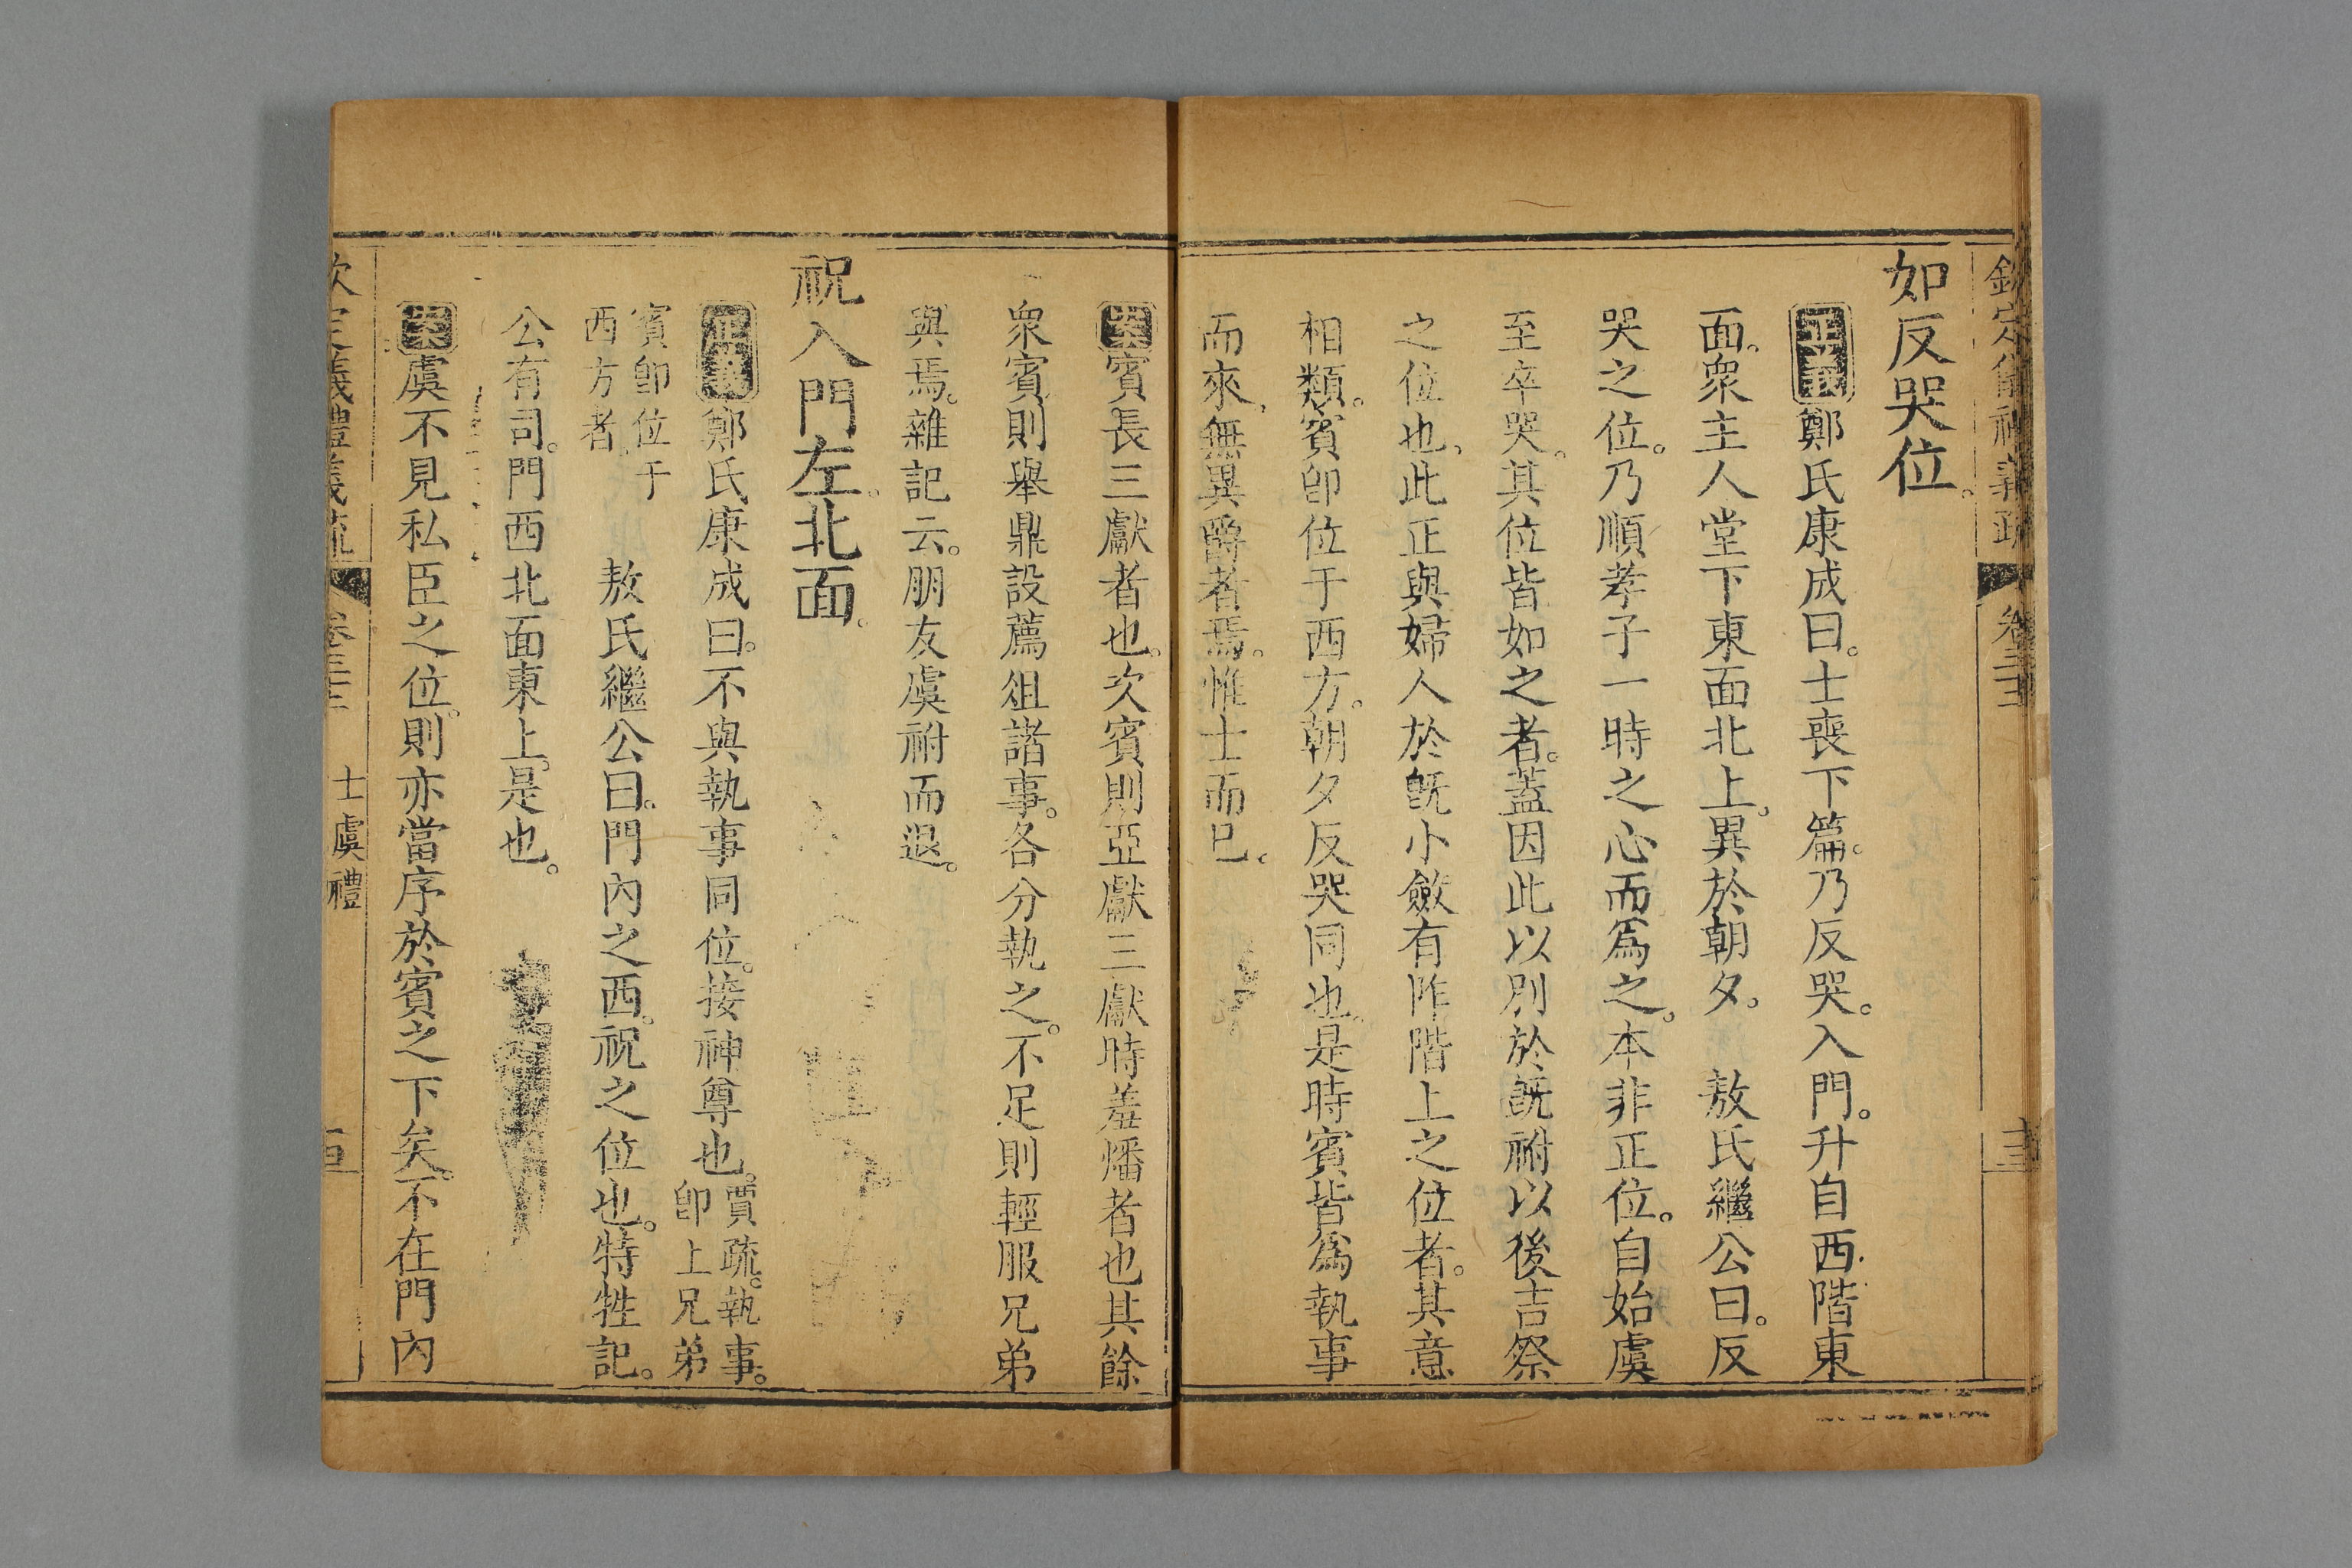 欽定儀禮義疏 卷三十三
如反哭位。
正義鄭氏康成曰。士喪下篇。乃反哭。入門。升自西階東
面。衆主人堂下東面北上。異於朝夕。 敖氏繼公曰。反
哭之位。乃順孝子一時之心而爲之。本非正位。自始虞
至卒哭。其位皆如之者。蓋因此以別於旣祔以後吉祭
之位也。此正與婦人於旣小斂有阼階上之位者。其意
相類。賓卽位于西方。朝夕反哭同也。是時賓皆爲執事
而來。無異爵者焉。惟士而已。
案賓長三獻者也。次賓則亞獻三獻時羞燔者也其餘
衆賓則舉鼎設薦俎諸事。各分執之。不足則輕服兄弟
與焉。雜記云。朋友虞祔而退。
祝入門左。北面。
正義鄭氏康成曰。不與執事同位。接神尊也。賈疏。執事。卽上兄弟
賓卽位于西方者。 敖氏繼公曰。門內之西。祝之位也。特牲記。
公有司。門西北面東上。是也。
案虞不見私臣之位。則亦當序於賓之下矣。不在門內
欽定儀禮義疏 卷三十三 士虞禮